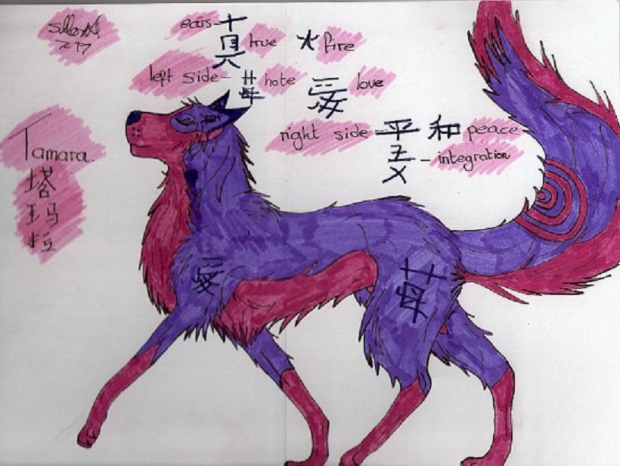 ears- 真 true 火 fire
left side- 苺 hate love
right side- 平和 peace
- integration
Tamara
塔
玛
拉
苺